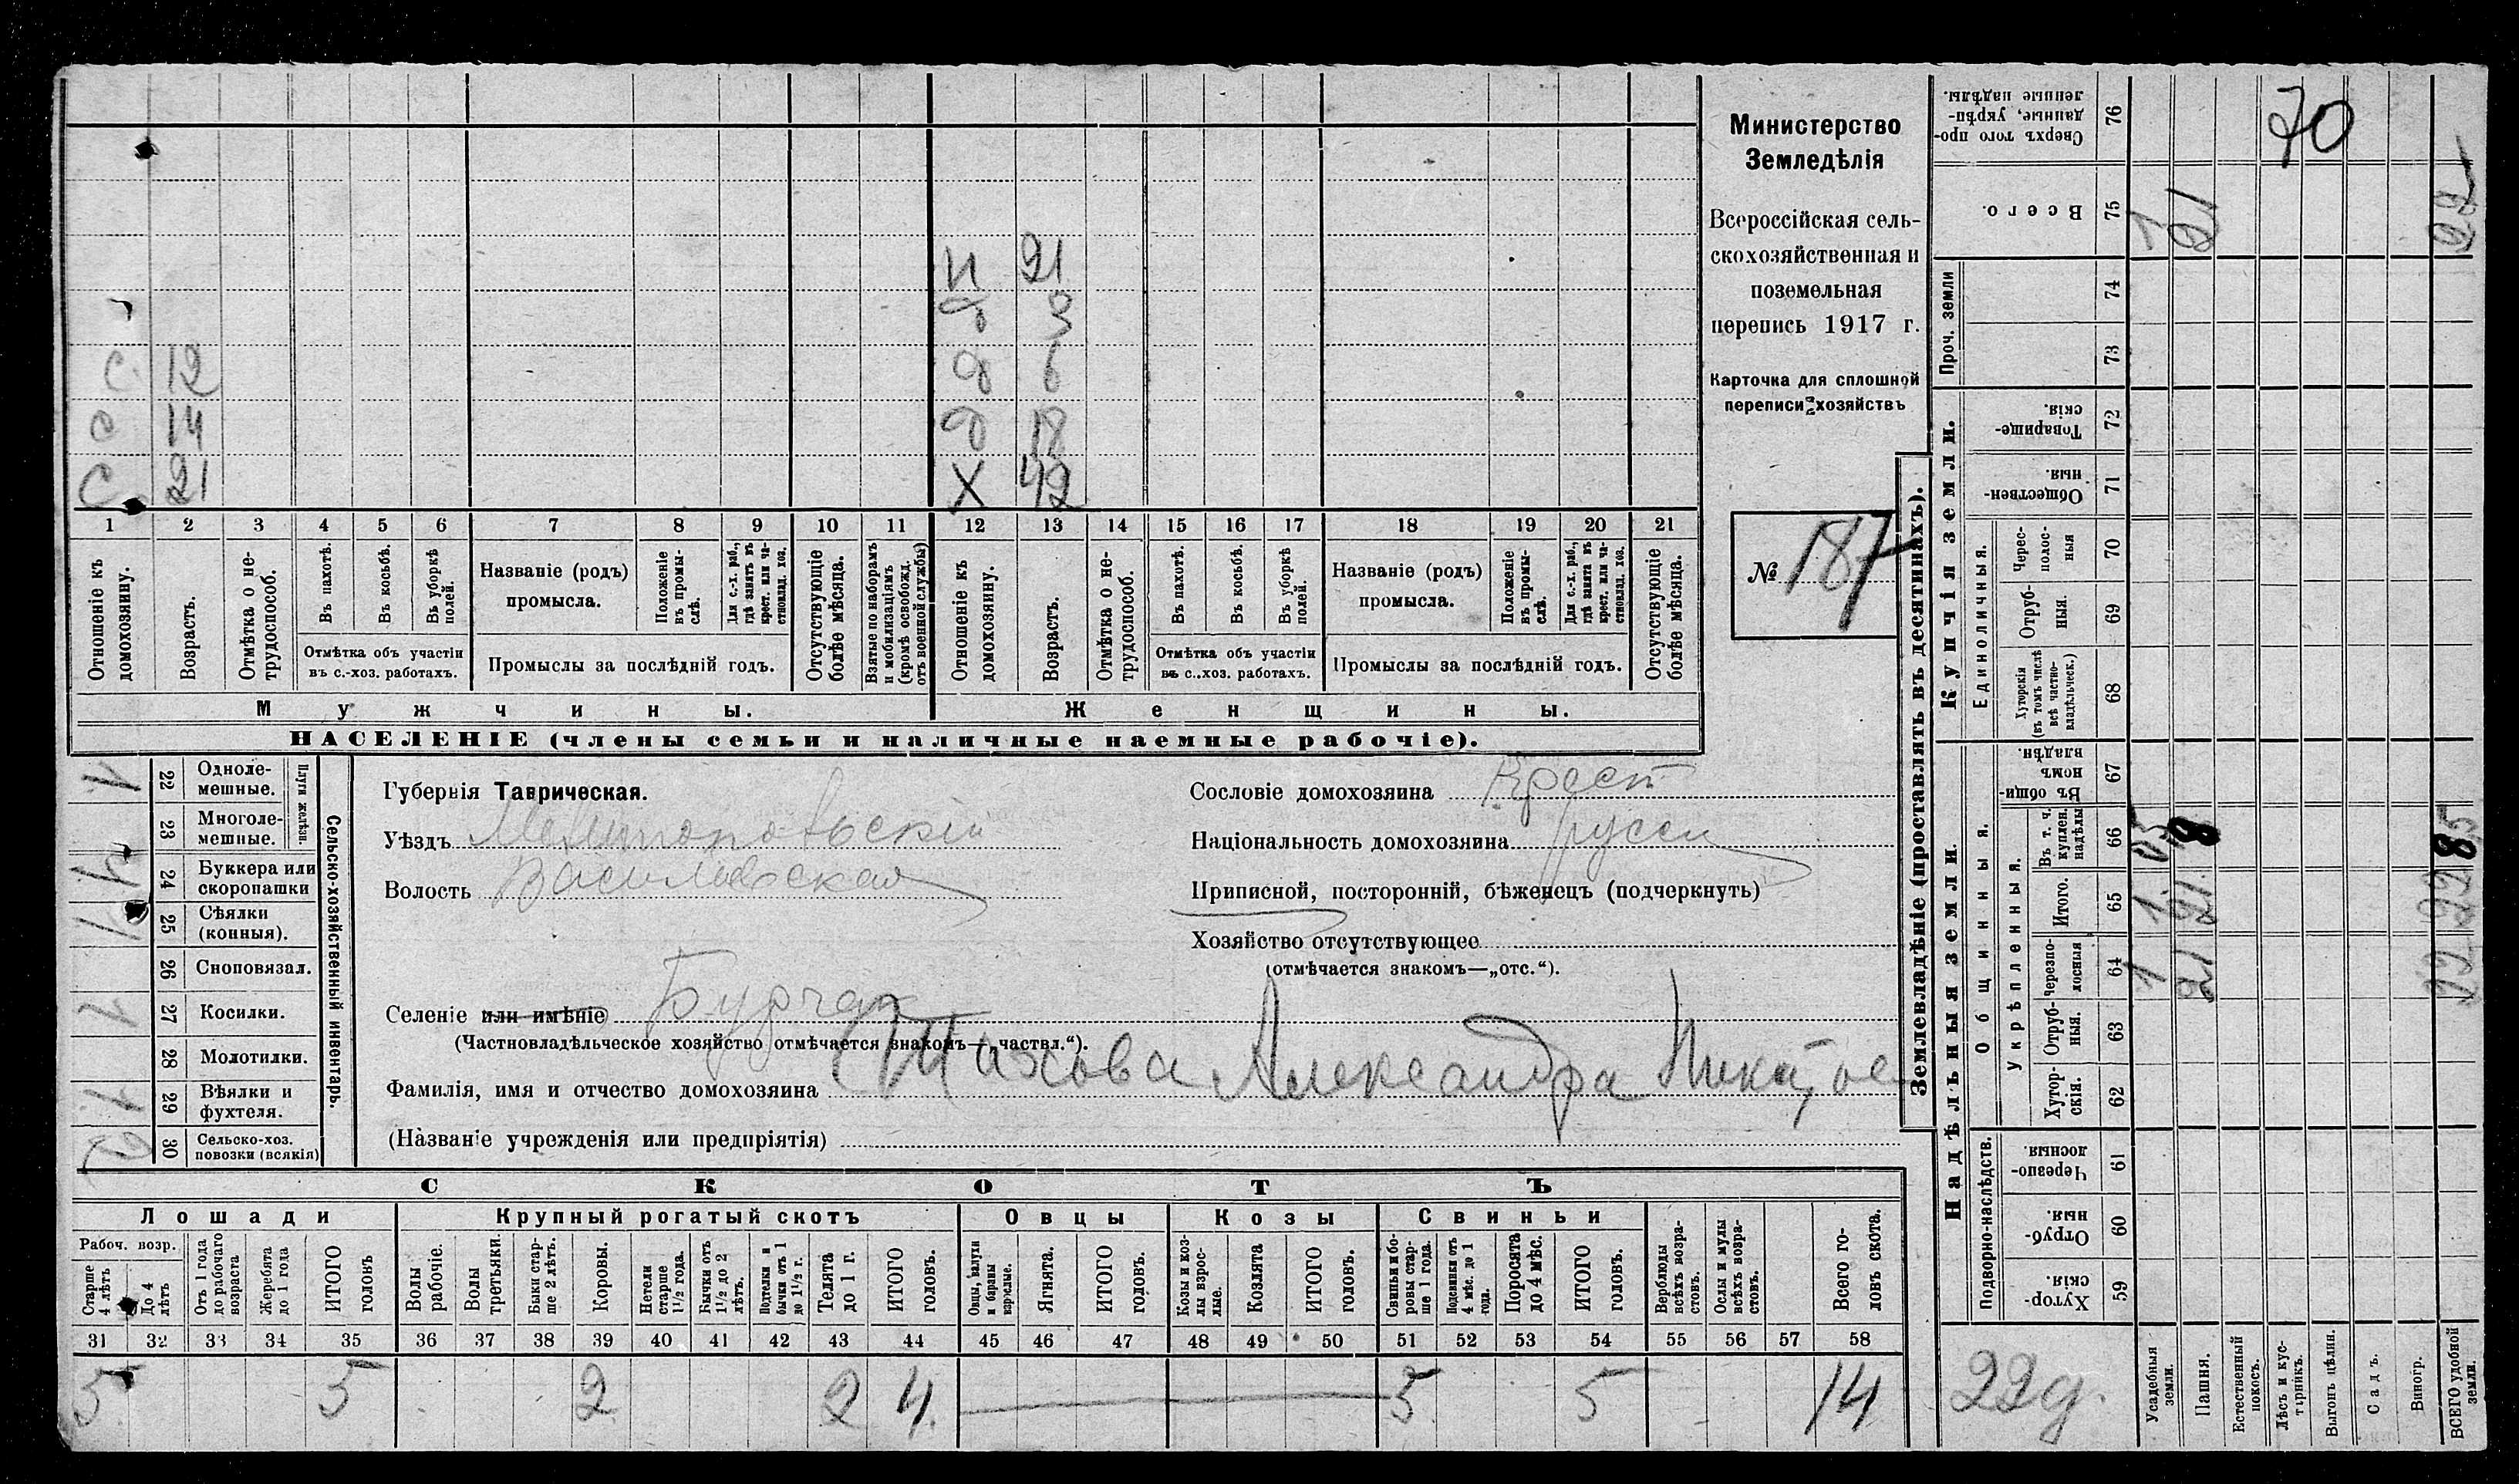 Министерство
Земледѣлія
Всероссійская сель-
скохозяйственная и
поземельная
перепись 1917 г.
Карточка для сплошной
переписи хозяйствъ
№ 187
и 21
д 3
с 12 д 6
с 14 д 18
с 21 х 42
1 2 3 4 5 6 7 8 9 10 11 12 13 14 15 16 17 18 19 20 21
Отношеніе къ домохозяину.
Возрастъ.
Отмѣтка о не-трудоспособ.
Въ пахотѣ.
Въ косьбѣ.
Въ уборкѣ полей.
Отмѣтка объ участіи
въ с.-хоз. работахъ.
Названіе (родъ)
промысла.
Положеніе въ промы-слѣ.
Для с.-х. раб., гдѣ занятъ въ крест. или ча-стновлад. хоз.
Промыслы за послѣдній годъ.
Отсутствующіе болѣе мѣсяца.
Взятые по наборамъ и мобилизаціямъ (кромѣ освобожд. отъ военной службы)
Отношеніе къ домохозяину.
Возрастъ.
Отмѣтка о не-трудоспособ.
Въ пахотѣ.
Въ косьбѣ.
Въ уборкѣ полей.
Отмѣтка объ участіи
въ с..хоз. работахъ.
Названіе (родъ)
промысла.
Положеніе въ промы-слѣ.
Для с.-х. раб., гдѣ занята въ крест. или ча-стновлад. хоз.
Промыслы за послѣдній годъ.
Отсутствующіе болѣе мѣсяца.
Мужчины. Женщины.
НАСЕЛЕНІЕ (члены семьи и наличные наемные рабочіе).
Сельско-хозяйственный инвентарь.
Плуги желѣзн.
22 Одноле-мешные. 1
23 Многоле-мешные.
24 Буккера или скоропашки 1
25 Сѣялки (конныя). 1
26 Сноповязал.
27 Косилки. 1
28 Молотилки.
29 Вѣялки и фухтеля. 1
30 Сельско-хоз. повозки (всякія) 2
Губернія Таврическая.
Уѣздъ Мелитопольскій
Волость Васильевская
Селеніе или имѣніе Бурчак
(Частновладѣльческое хозяйство отмѣчается знакомъ—„частвл.“).
Фамилія, имя и отчество домохозяина Александра
(Названіе учрежденія или предпріятія)
Сословіе домохозяина Крест
Національность домохозяина русск
Приписной, посторонній, бѣженецъ (подчеркнуть)
Хозяйство отсутствующее
(отмѣчается знакомъ—„отс.“).
СКОТЪ
Лошади Крупный рогатый скотъ Овцы Козы Свиньи
Рабоч. возр.
Старше 4 лѣтъ
До 4 лѣтъ
Отъ 1 года до рабочаго возраста
Жеребята до 1 года
ИТОГО головъ
Волы рабочіе.
Волы третьяки.
Быки стар-ше 2 лѣтъ.
Коровы.
Нетели старше 1½ года.
Бычки отъ 1½ до 2 лѣтъ.
Подтелки и бычки отъ 1 до 1½ г.
Телята до 1 г.
ИТОГО головъ.
Овцы, валухи и бараны взрослые.
Ягнята.
ИТОГО головъ.
Козы и коз-лы взрос-лые.
Козлята
ИТОГО головъ.
Свиньи и бо-ровы стар-ше 1 года.
Подсвинки отъ 4 мѣс. до 1 года.
Поросята до 4 мѣс.
ИТОГО головъ.
Верблюды всѣхъ возра-стовъ.
Ослы и мулы всѣхъ возра-стовъ.
Всего го-ловъ скота.
31 32 33 34 35 36 37 38 39 40 41 42 43 44 45 46 47 48 49 50 51 52 53 54 55 56 57 58
5 5 2 2 4 5 5 14
Землевладѣніе (проставлять въ десятинахъ).
Купчія земли.
Надѣльныя земли.
76 Сверхъ того про-данные, укрѣп-ленные надѣлы. 70
75 Всего. 1 21 22
Проч. земли
74
73
72 Товарище-скія.
71 Обществен-ныя.
Единоличныя.
70 Черес-полос-ныя
69 Отруб-ныя.
68 Хуторскія (въ томъ числѣ всѣ частно-владѣльческ.)
Общинныя.
67 Въ общи-номъ владѣн.
Укрѣпленныя.
66 Въ т. ч. куплен. надѣлы 0,5 8 8,5
65 Итого. 1 21 22
64 Черезпо-лосныя 1 21 22
63 Отруб-ныя.
62 Хутор-скія.
Подворно-наслѣдств.
61 Черезпо-лосныя.
60 Отруб-ныя.
59 Хутор-скія.
22д.
Усадебныя земли.
Пашня.
Естественный покосъ.
Лѣсъ и кус-тарникъ.
Выгонъ цѣлин.
Садъ.
Виногр.
ВСЕГО удобной земли.